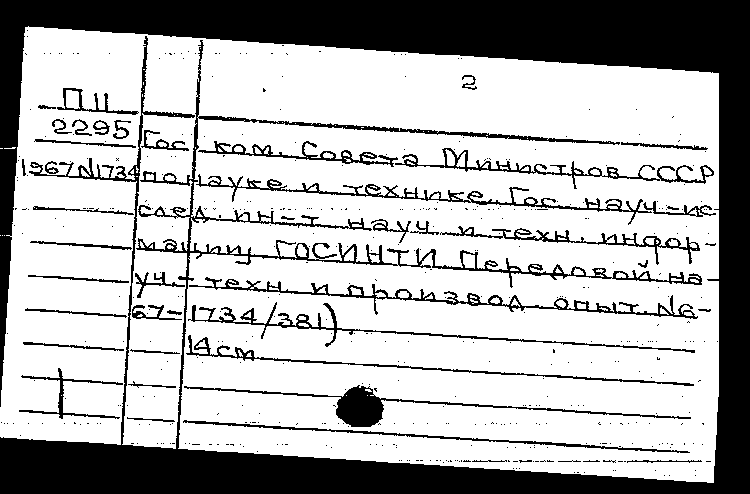 2
П 11
2295 Гос. ком. Совета Министров СССР
1967 N1734 по науке и технике. Гос. науч.-ис
след. ин-т науч. и техн. инфор-
мации ГОСИНТИ. Передовой на-
уч.-техн. и производ. опыт. №
67-1734/381).
14 см